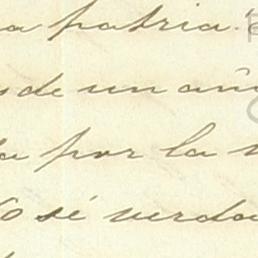 a patria.
de un añ
a por la
o sé verda